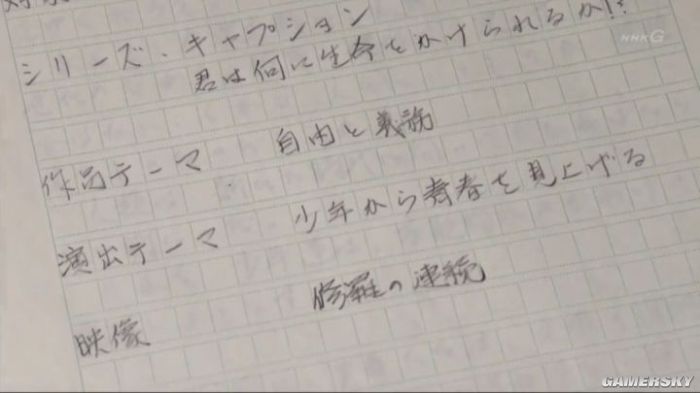 シリーズ・キャプション
君は何に生命をかけられるか!?
NHK G
作品テーマ 自由と義務
演出テーマ 少年から青春を見上げる
映像 修羅の連続
GAMERSKY